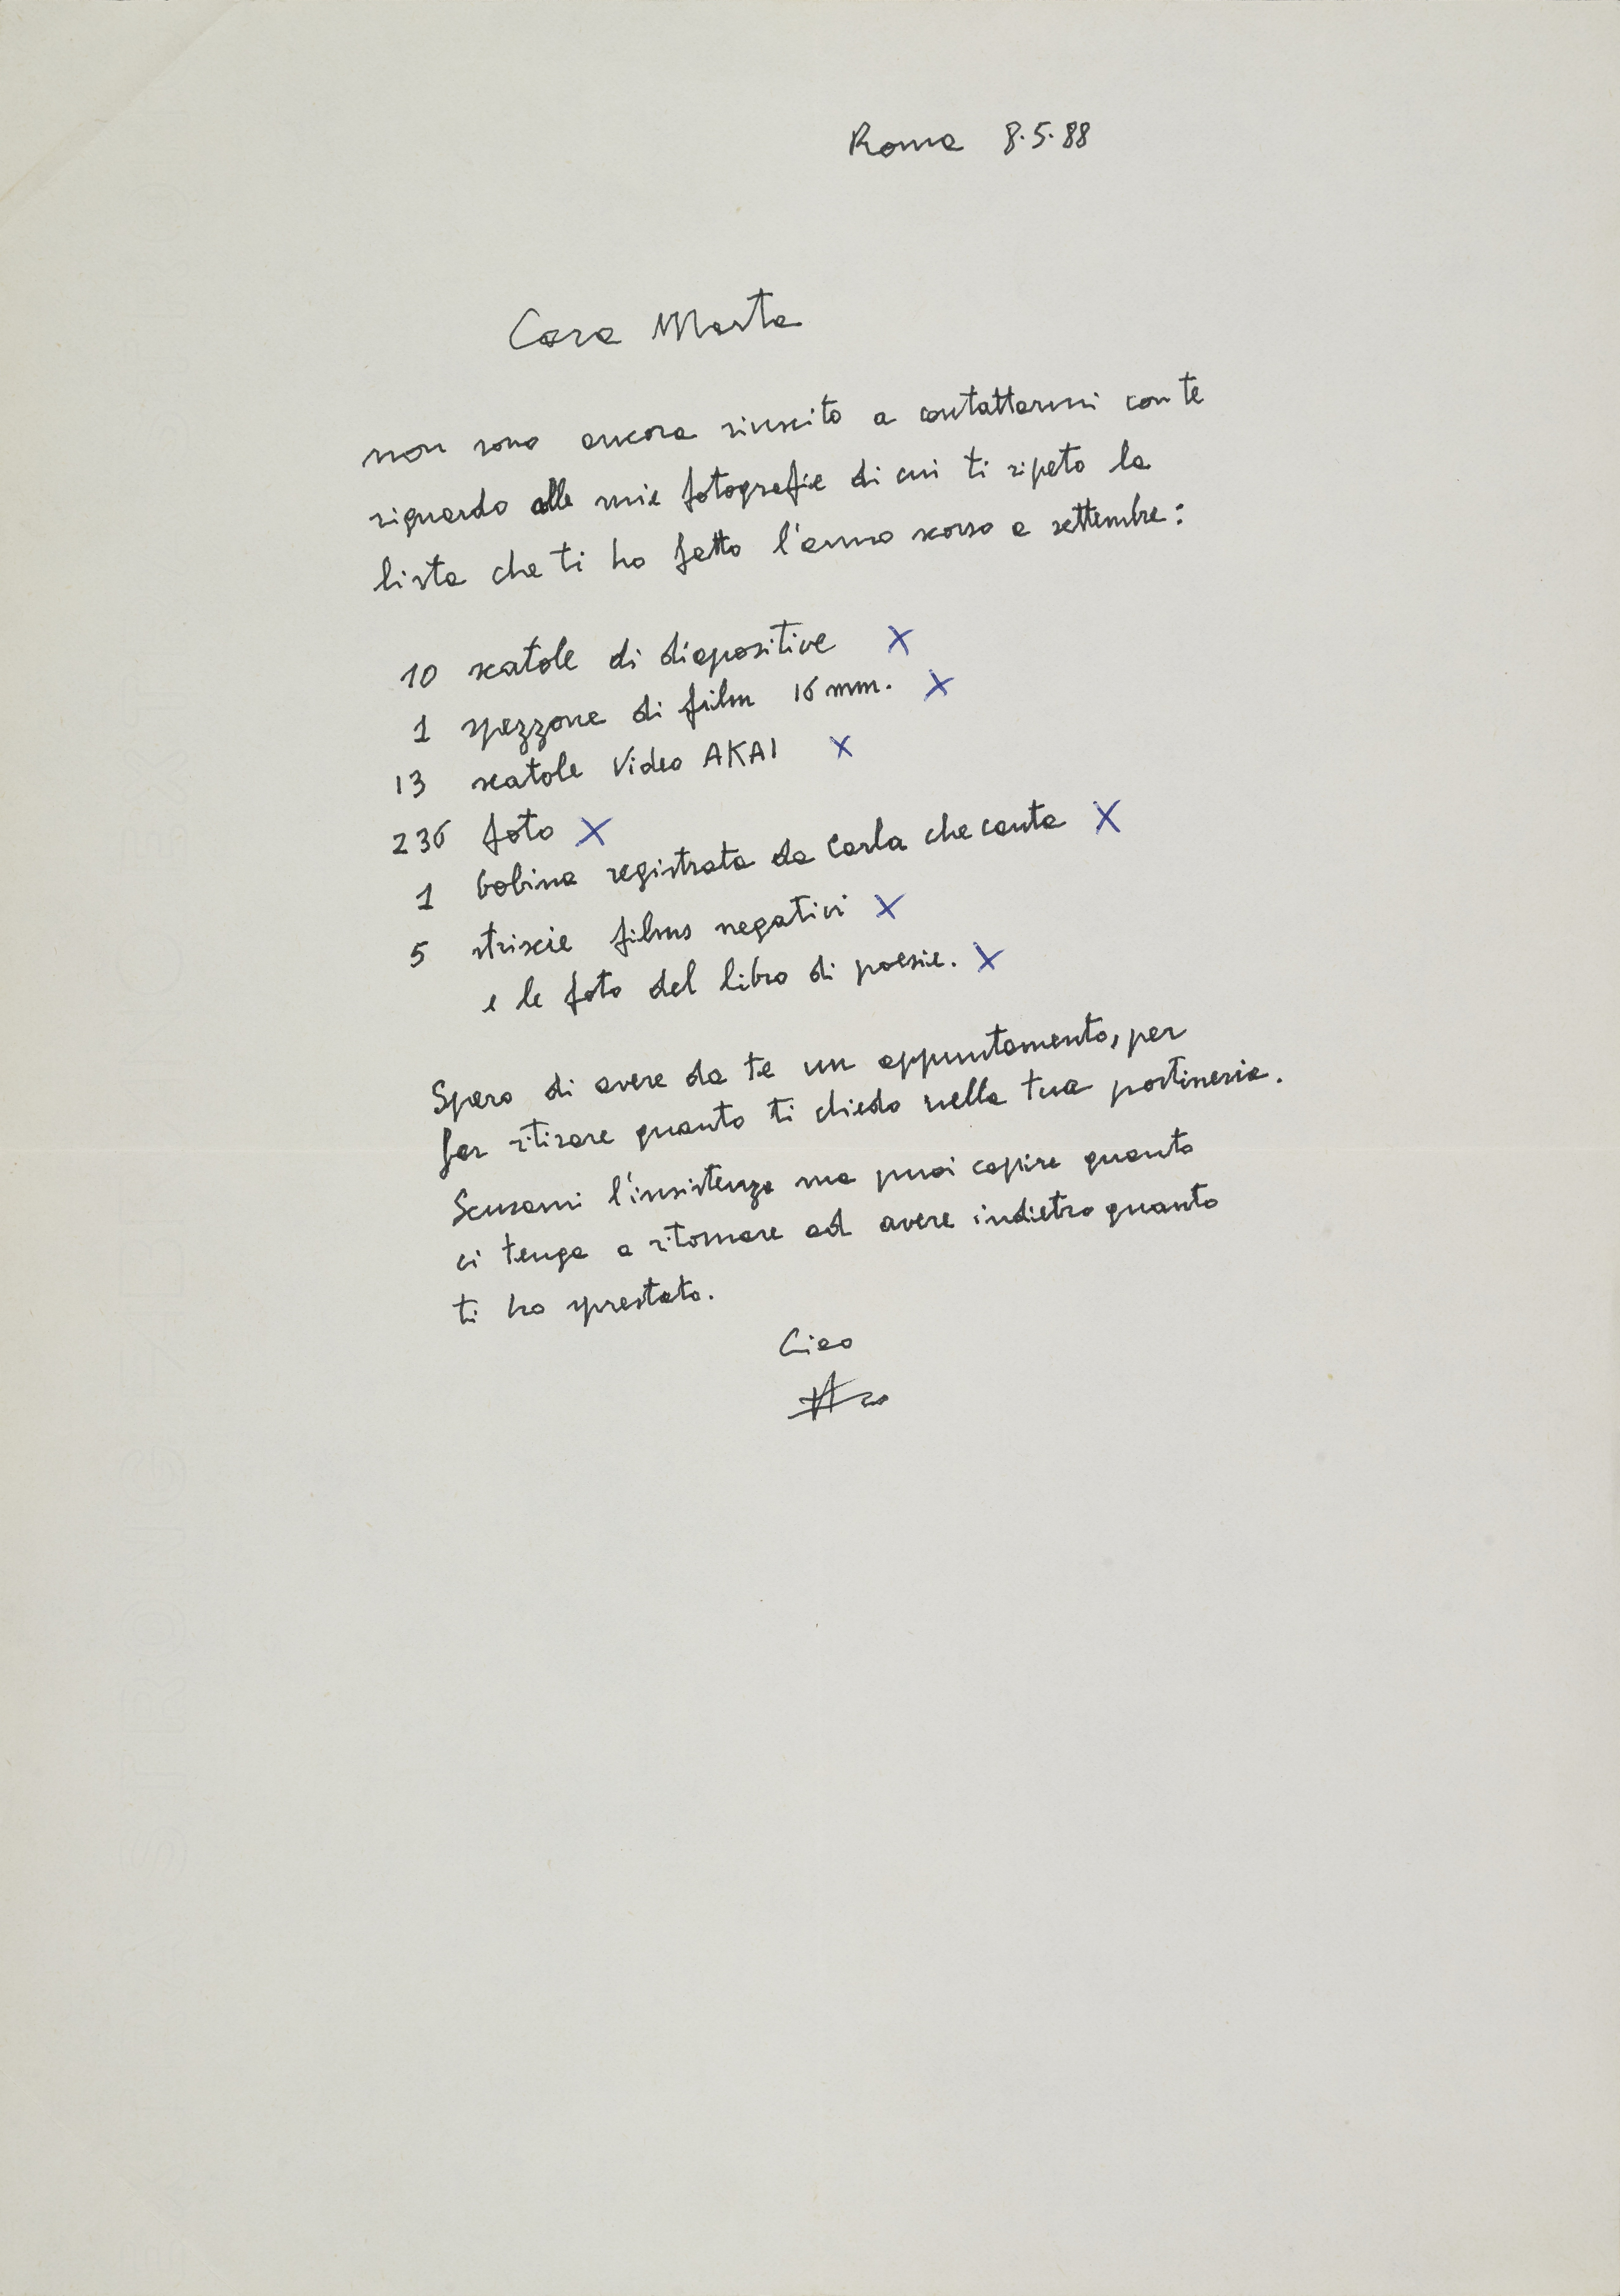 Roma 8.5.88
Cara Marta
non sono ancora riuscito a contattarmi con te
riguardo alle mie fotografie di cui ti ripeto la
lista che ti ho fatto l'anno scorso a settembre:
10 scatole di diapositive X
1 spezzone di film 16 mm. X
13 scatole Video AKAI X
236 foto X
1 bobina registrata da Carla che canta X
5 striscie films negativi X
e le foto del libro di poesie. X
Spero di avere da te un appuntamento, per
far ritirare quanto ti chiedo nella tua portineria.
Scusami l'insistenza ma puoi capire quanto
ci tenga a ritornare ad avere indietro quanto
ti ho prestato.
Ciao